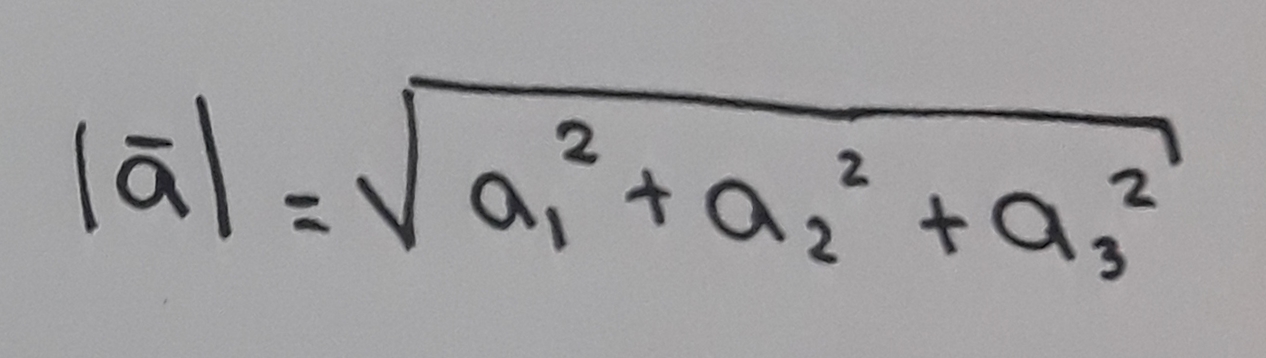 |ā| = √(a₁² + a₂² + a₃²)